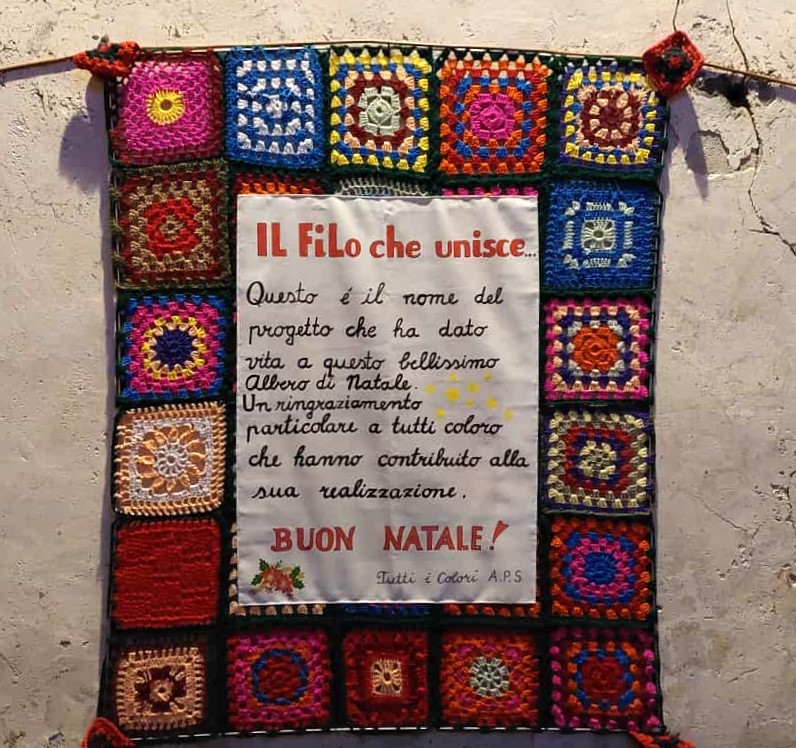 IL FiLo che unisce...
Questo é il nome del
progetto che ha dato
vita a questo bellissimo
Albero di Natale.
Un ringraziamento
particolare a tutti coloro
che hanno contribuito alla
sua realizzazione.
BUON NATALE!
Tutti i Colori A.P.S